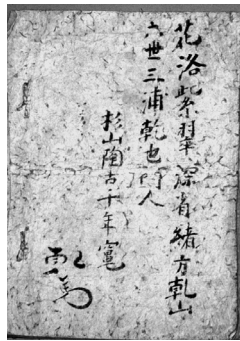 花洛紫翠深省緒方乾山
六世三浦乾也門人
杉山陶古十年竈